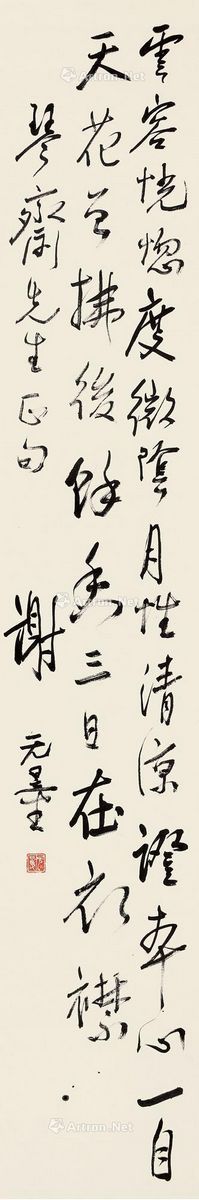 雲容恍惚度微陰月性清涼證本心一自
天花曾拂後餘香三日在衣襟
琴齋先生正句
謝无量